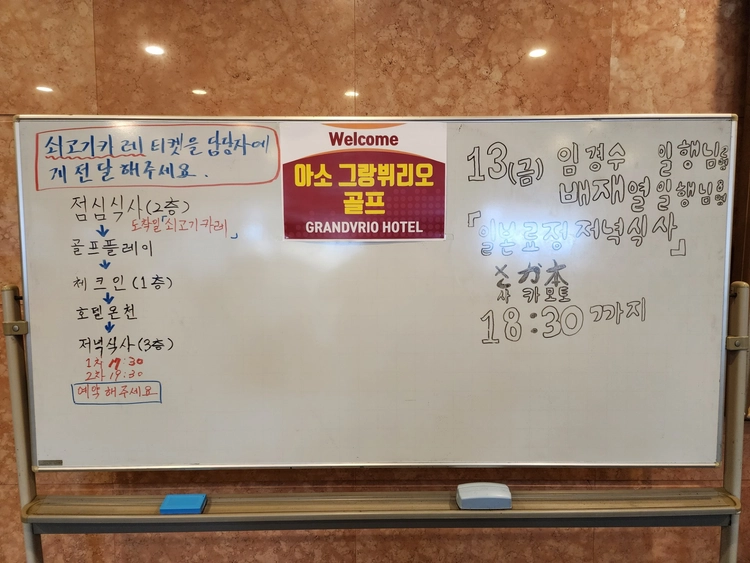 쇠고기카레 티켓을 담당자에
게 전달해주세요.
점심식사(2층)
도착일「쇠고기카레」
골프플레이
체크인(1층)
호텔온천
저녁식사(3층)
1차 17:30
2차 19:30
예약해주세요
Welcome
아소 그랑뷔리오
골프
GRANDVRIO HOTEL
13(금) 임경수 일행님
배재열 일행님
「일본료정 저녁식사」
本
사카모토
18:30 까지